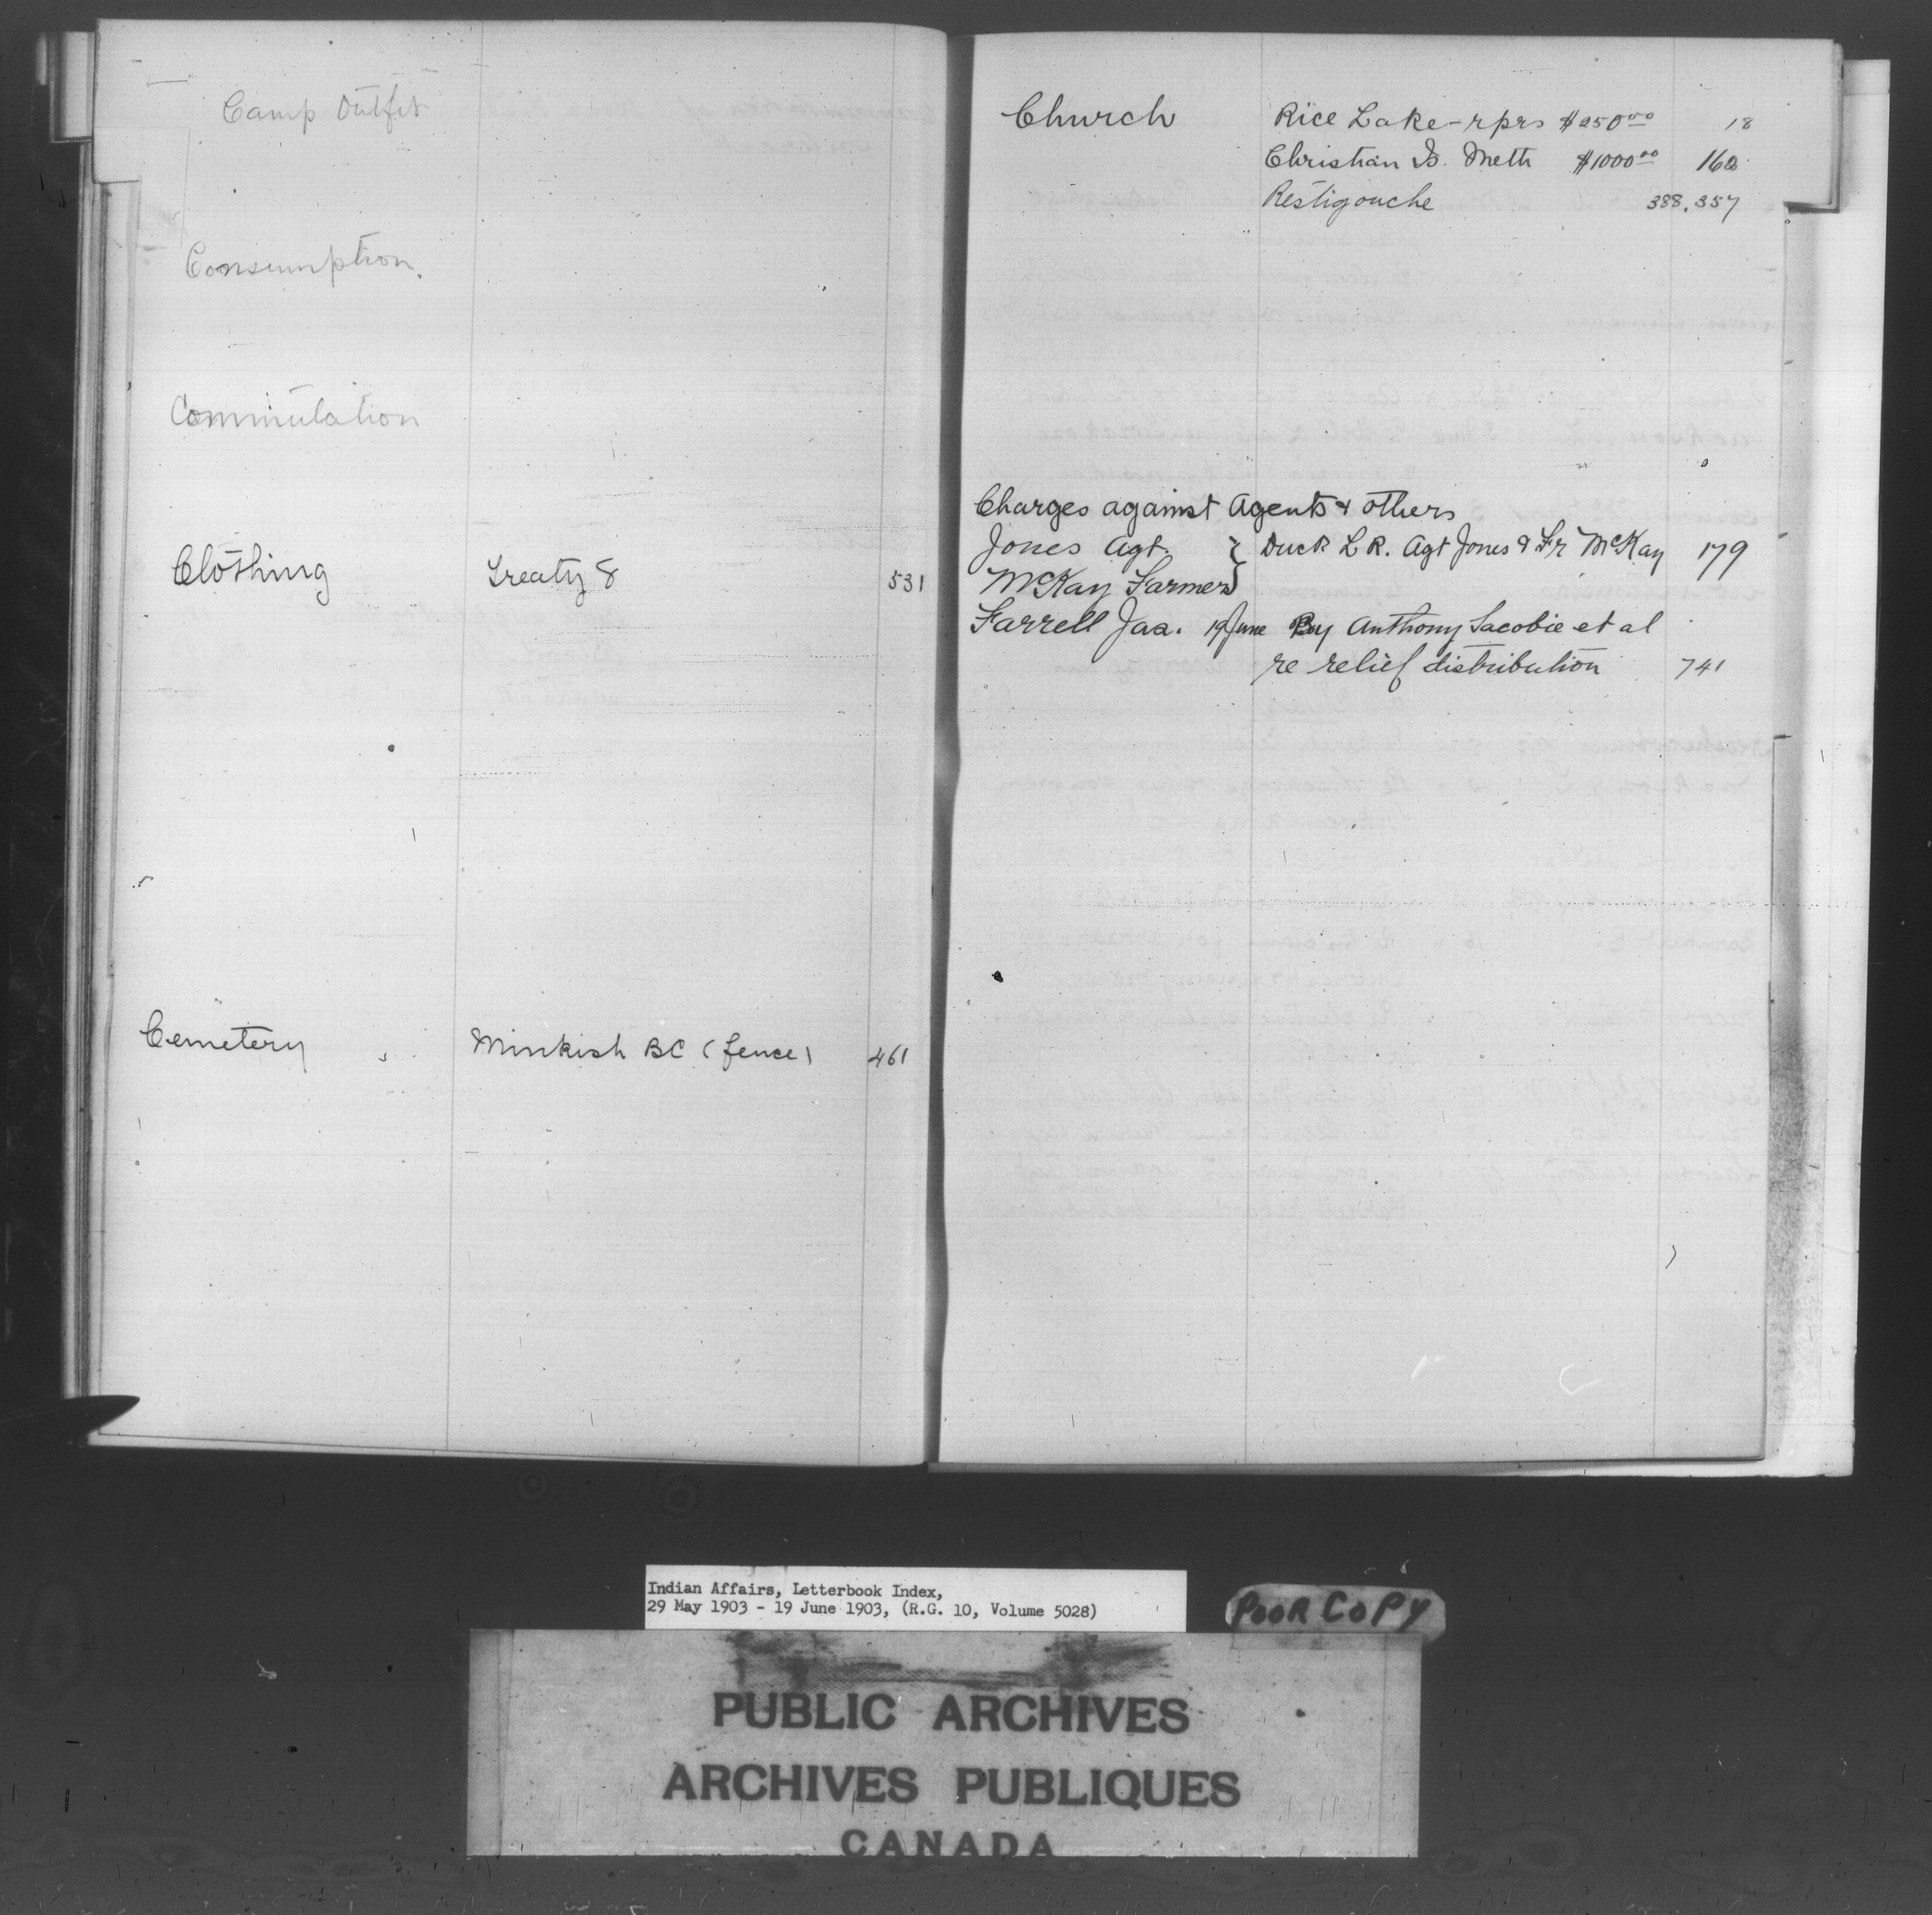 Camp Outfit
Consumption.
Commutation
Clothing Treaty 8 531
Cemetery Minkish BC (fence) 461
Church Rice Lake - rprs $250.00 18
Christian Is. Meth $1000.00 162
Restigouche 388,357
Charges against Agents & others
Jones Agt. } Duck L R. Agt Jones & Fr McKay 179
McKay Farmer
Farrell Jas. 19 June By Anthony Sacobie et al
re relief distribution 741
Indian Affairs, Letterbook Index,
29 May 1903 - 19 June 1903, (R.G. 10, Volume 5028)
POOR COPY
PUBLIC ARCHIVES
ARCHIVES PUBLIQUES
CANADA